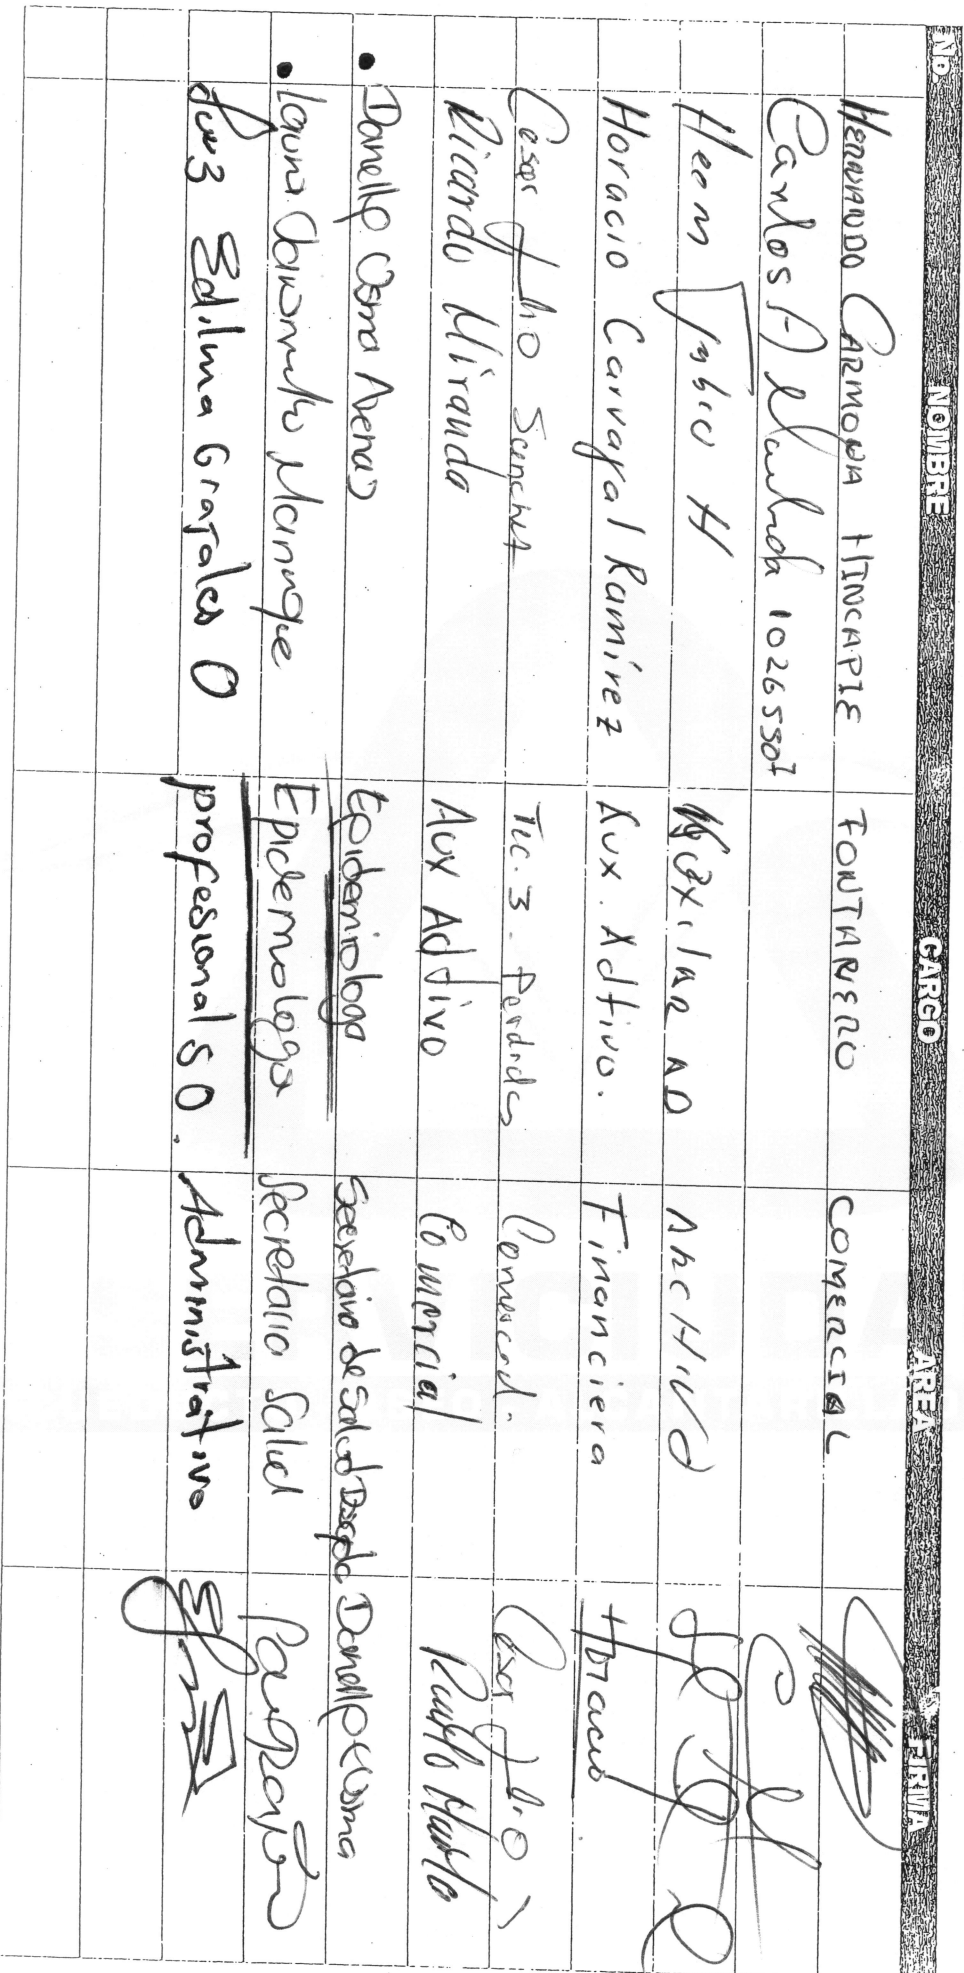 No. NOMBRE CARGO AREA FIRMA
HERNANDO CARMONA HINCAPIE FONTANERO COMERCIAL
Carlos A 10265507
Hern H Auxiliar AD ArcHivo
Horacio Carvajal Ramírez Aux. Adtivo. Financiera Horacio
Cesar Julio Sanchez Tec. 3. Perdidas Comercial Cesar Julio
Ricardo Miranda Aux Adtivo Comercial
• Danelly Osma Arenas Epidemiologa Secretaria de Salud Danelly Osma
• Laura Manrique Epidemologa Secretaria Salud
Luz Edilma Grajales O profesional SO. Administrativo